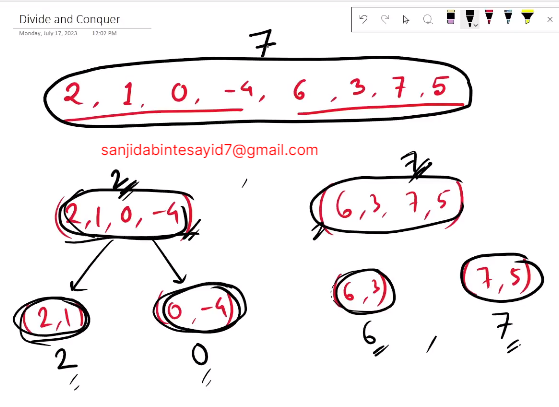 Divide and Conquer
Monday, July 17, 2023 12:02 PM
7
2, 1, 0, -4, 6, 3, 7, 5
sanjidabintesayid7@gmail.com
2 7
(2,1,0,-4) (6,3, 7,5)
(2,1) (0,-4) (6,3) (7,5)
2 0 6 , 7